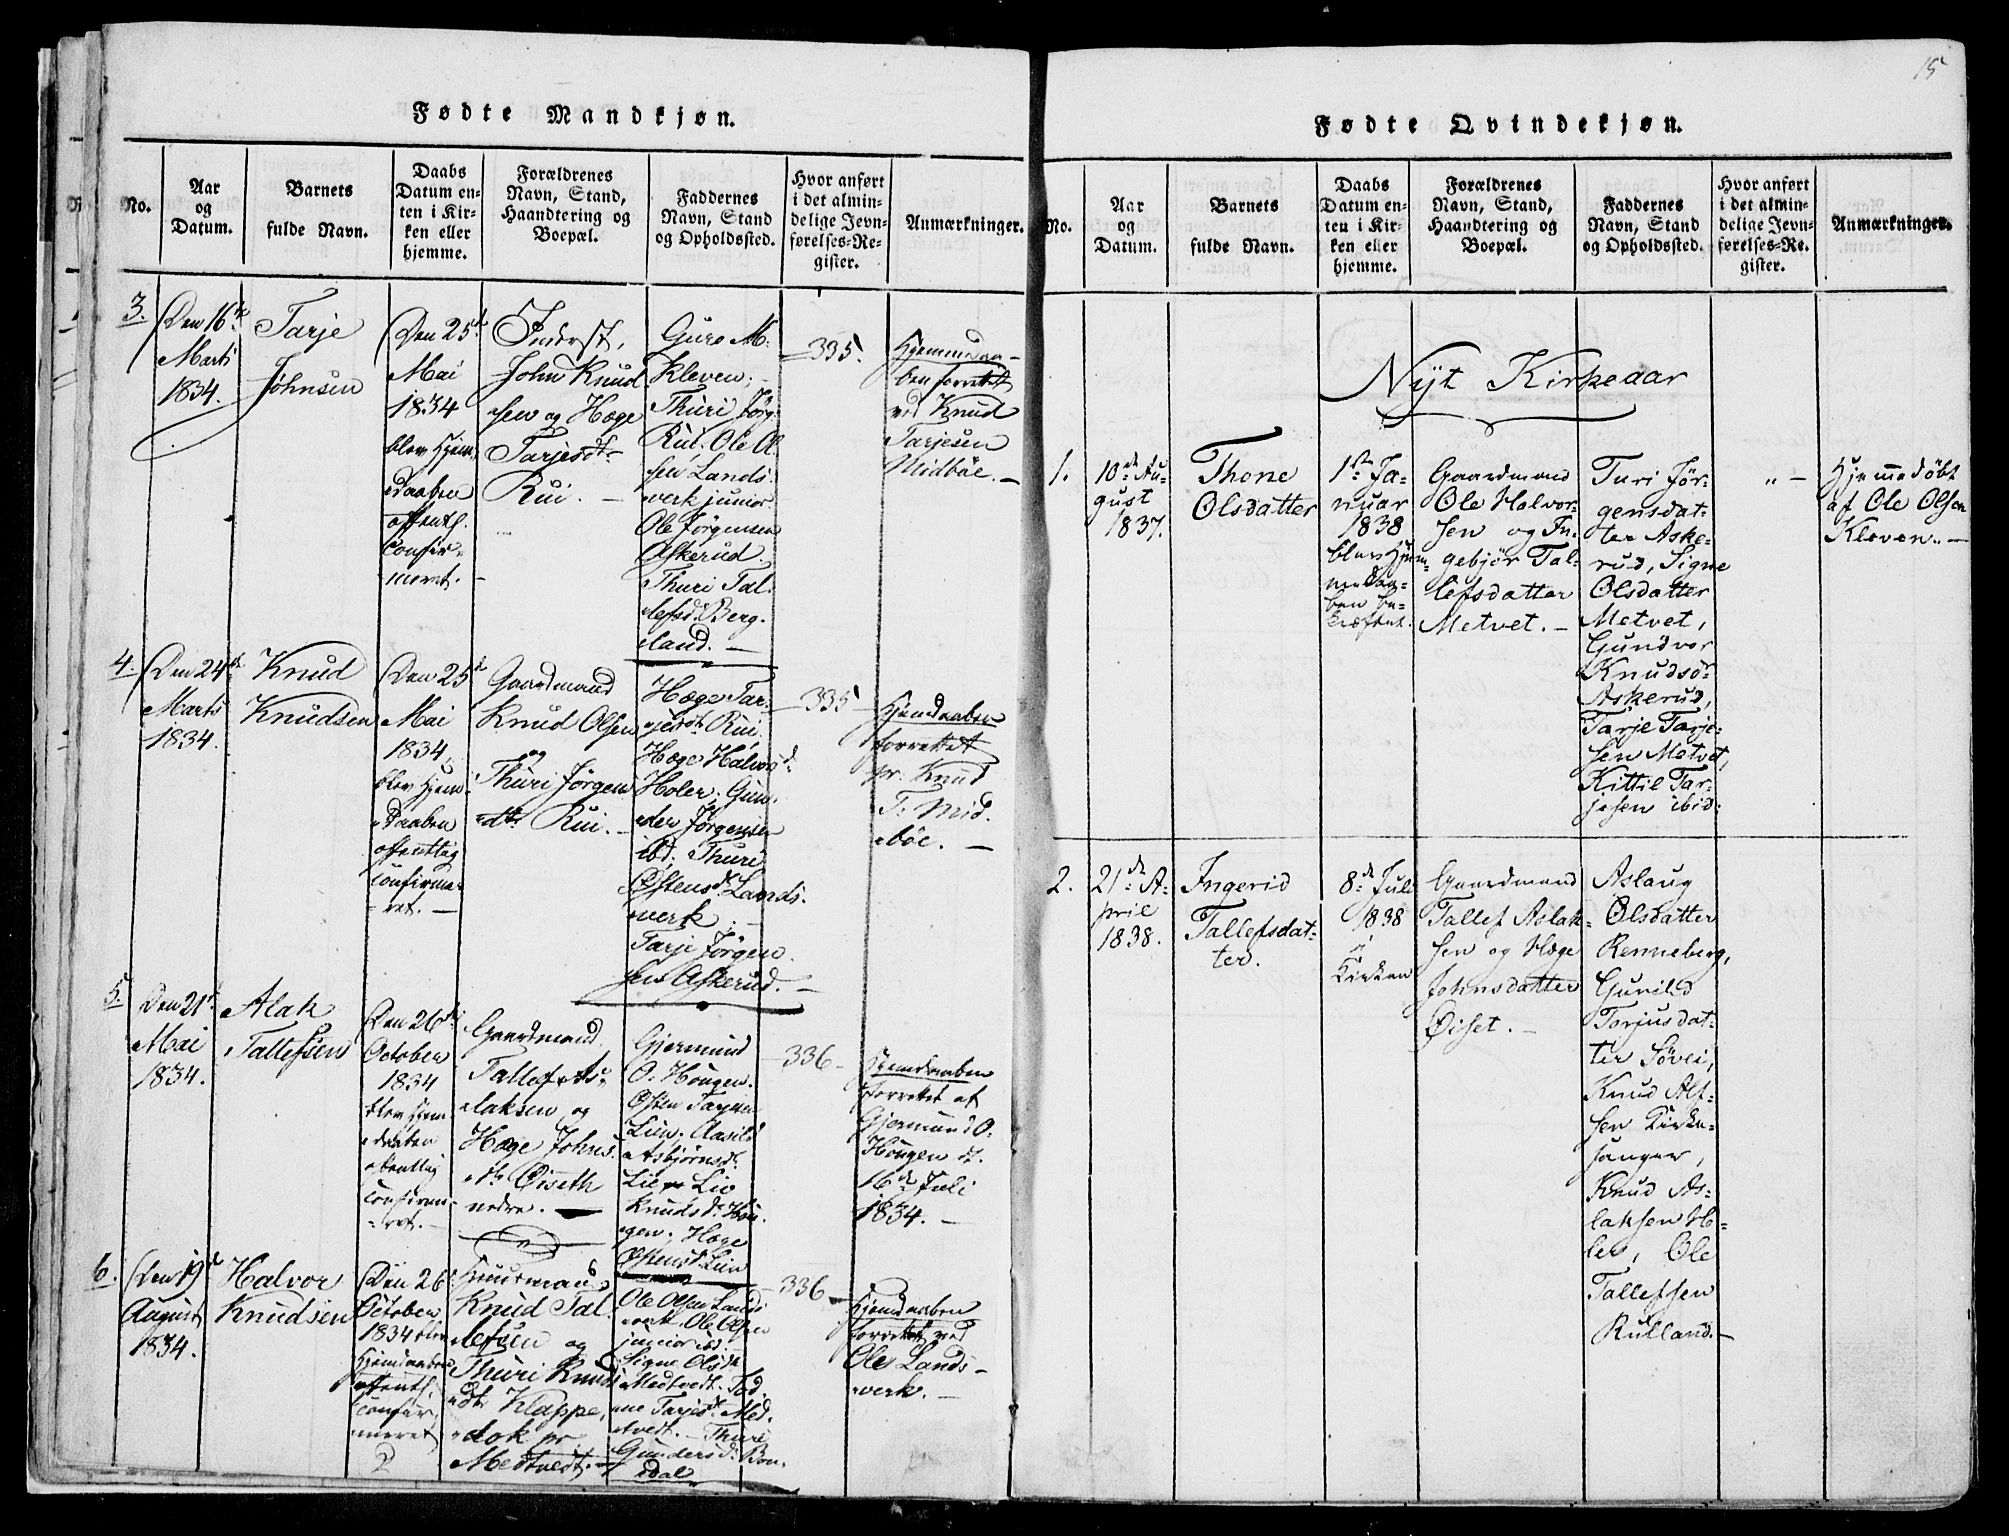 15
Fødte Mandkjøn.
No.
Aar
og
Datum.
Barnets
fulde Navn.
Daabs
Datum en-
ten i Kir-
ken eller
hjemme.
Forældrenes
Navn, Stand,
Haandtering og
Boepæl.
Faddernes
Navn, Stand
og Opholdssted.
Hvor anført
i det almin-
delige Jevn-
førelses-Re-
gister.
Anmærkninger.
3.
Den 16de
Marts
1834.
Tarje
Johnsen
Den 25d
Mai
1834
blev Hjem-
Daaben
offentl.
confir-
meret.
Inderst,
John Knud
sen og Hæge
Tarjesdt
Rui.
Guro M:
Kleven,
Thuri Jørg.
Rui. Ole O.
sen Lands-
verk junior
Ole Jørgensen
Askerud.
Thuri Tal-
lefsd. Berg-
land.
335.
Hjemmedaa-
ben forrettet
ved Knud
Tarjesen
Midbøe.
4.
Den 24d
Marts
1834.
Knud
Knudsen
Den 25d
Mai
1834
blev Hjem
Daaben
offentlig
confirme-
ret.
Gaardmand
Knud Olsen
og
Thuri Jørgens
dtr Rui.
Hæge Tar-
jesdt Rui.
Hæge Halvorsd.
Holer. Gun-
der Jørgensen
ibd. Thuri
Østensdt Lands-
werk.
Tarje Jørgen-
sen Askerud.
335
Hjemdaaben
forrettet
pr. Knud
T. Mid-
bøe.
5.
Den 21d
Mai
1834.
Alak
Tallefsen
Den 26d
October
1834
blev Hjem
daaben
offentlig
confirme-
ret.
Gaardmand
Tallef As-
laksen og
Hæge Johns-
dtr Øiseth
nedre.
Gjermund
O. Hougen.
Østen Tarjesen
Lien, Aasild
Asbjørnsdt
Lie Liv
Knudsd. Hou-
gen. Hæge
Østensdt Lien
336
Hjemdaaben
forrettet af
Gjermund O.
Hougen d.
16de Juli
1834.
6.
Den 19d
August
1834.
Halvor
Knudsen
Den 26
October
1834 blev
Hjemdaaben
offentl.
confir-
meret
Huusmand
Knud Tal-
lefsen og
Thuri Knuds
dt. Klappe,
dok pr
Medtvedt.
Ole Olsen Lands
verk. Ole Olsen
junior ibd.
Signe Olsdt
Medtvedt.
Tarjesdt Med-
tvedt. Thuri
Gundersd. Bon-
dal
336
Hjemdaaben
forrettet ved
Ole Lands-
verk.
Fødte Qvindekjøn.
No.
Aar
og
Datum.
Barnets
fulde Navn.
Daabs
Datum en-
ten i Kir-
ken eller
hjemme.
Forældrenes
Navn, Stand,
Haandtering og
Boepæl.
Faddernes
Navn, Stand
og Opholdssted.
Hvor anført
i det almin-
delige Jevn-
førelses-Re-
gister.
Anmærkninger.
Nyt Kirkeaar
1.
10de Au-
gust
1837.
Thone
Olsdatter
1ste Ja-
nuar
1838
blev Hjem-
medaa-
ben be-
kræftet.
Gaardmand
Ole Halvor-
sen og In-
gebjør Tal-
lefsdatter
Metvet.
Turi Jør-
gensdat-
ter Aske-
rud, Signe
Olsdatter
Metvet,
Gundvor
Knudsd:
Askerud,
Tarje Tarje-
sen Metvet,
Kittil Tar-
jesen ibid:
" -
Hjemmedøbt
af Ole Olsen
Kleven.
2.
21de A-
pril
1838.
Ingerid
Tallefsdat-
ter.
8de Juli
1838
i
Kirken
Gaardmand
Tallef Aslak-
sen og Hæge
Johnsdatter
Øiset.
Aslaug
Olsdatter
Renneberg,
Gunild
Torjusdat-
ter Søvei,
Knud Alf-
sen Kirke-
sanger,
Knud As-
laksen Ho-
ler, Ole
Tallefsen
Rulland.